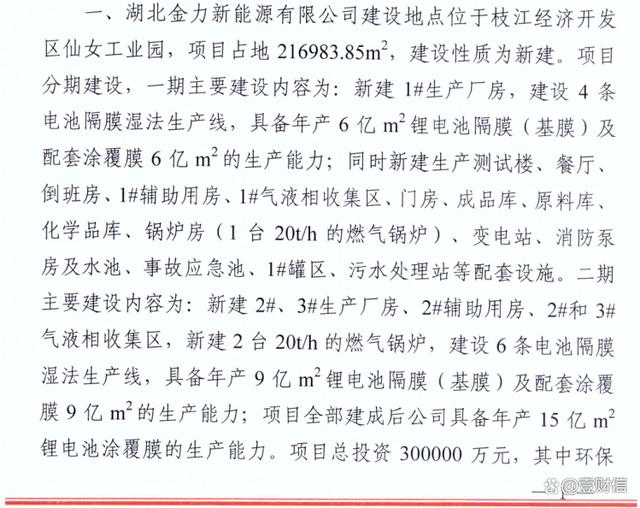 一、湖北金力新能源有限公司建设地点位于枝江经济开发
区仙女工业园，项目占地 216983.85m²，建设性质为新建。项目
分期建设，一期主要建设内容为：新建 1#生产厂房，建设 4 条
电池隔膜湿法生产线，具备年产 6 亿 m²锂电池隔膜（基膜）及
配套涂覆膜 6 亿 m²的生产能力；同时新建生产测试楼、餐厅、
倒班房、1#辅助用房、1#气液相收集区、门房、成品库、原料库、
化学品库、锅炉房（1 台 20t/h 的燃气锅炉）、变电站、消防泵
房及水池、事故应急池、1#罐区、污水处理站等配套设施。二期
主要建设内容为：新建 2#、3#生产厂房、2#辅助用房、2#和 3#
气液相收集区，新建 2 台 20t/h 的燃气锅炉，建设 6 条电池隔膜
湿法生产线，具备年产 9 亿 m²锂电池隔膜（基膜）及配套涂覆
膜 9 亿 m²的生产能力；项目全部建成后公司具备年产 15 亿 m²
锂电池涂覆膜的生产能力。项目总投资 300000 万元，其中环保
@壹财信